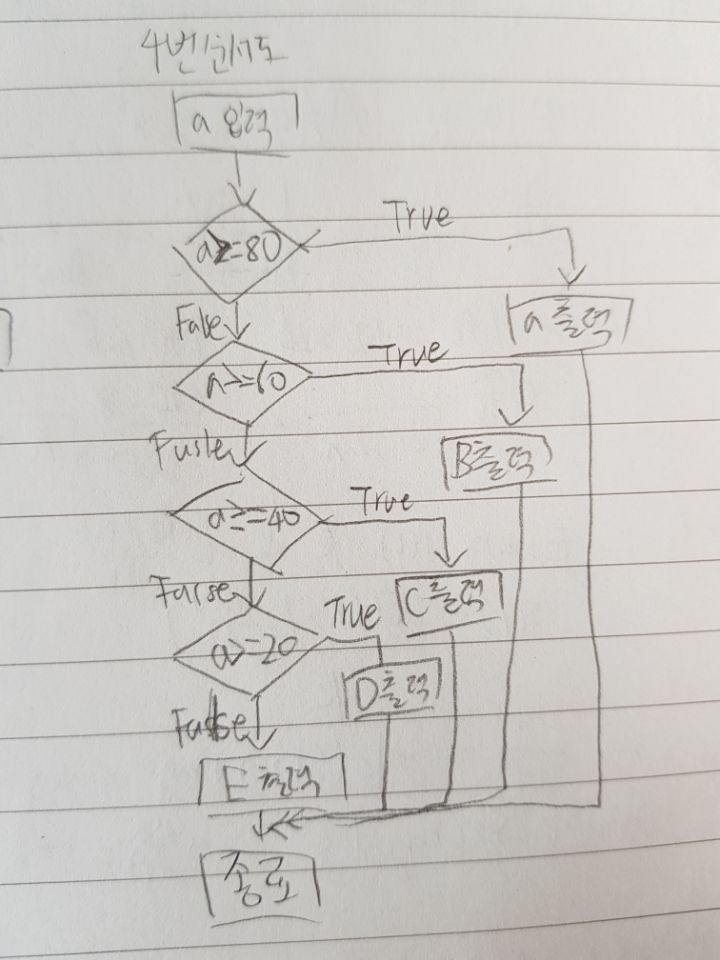 4번 순서도
a 입력
a>=80
True
a 출력
False
a>=60
True
B출력
Fusle
a>=40
True
C출력
Farse
a>=20
True
D출력
False
E 출력
종료